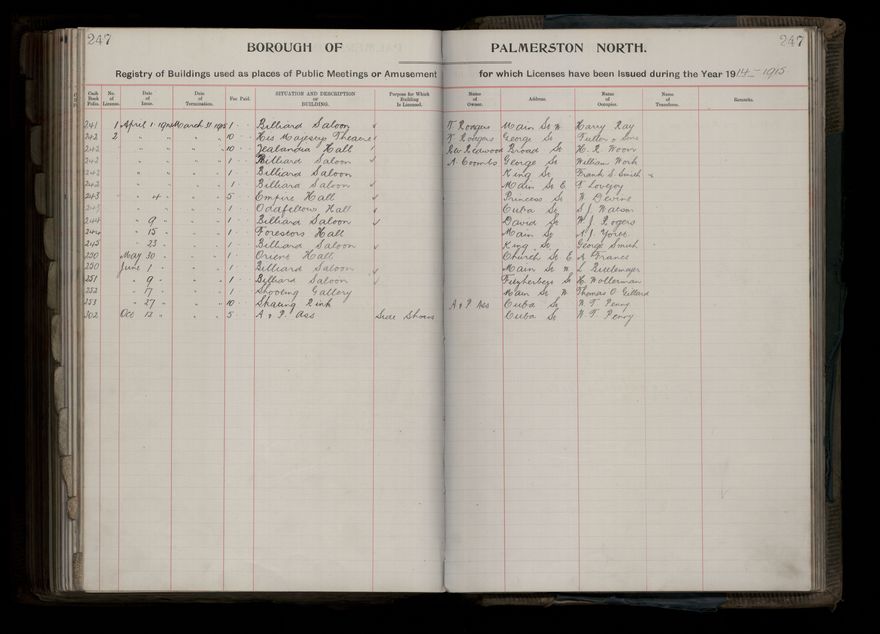 247
247
BOROUGH OF PALMERSTON NORTH.
Registry of Buildings used as places of Public Meetings or Amusement for which Licenses have been Issued during the Year 1914-1915
Cash Book Folio. No. of License. Date of Issue. Date of Termination. Fee Paid. SITUATION AND DESCRIPTION OF BUILDING. Purpose for Which Building Is Licensed. Name of Owner. Address. Name of Occupier. Name of Transferee. Remarks.
241 1 April 1 1914 March 31 1915 1 " " Billiard Saloon ✓ Main St W Harry Ray
242 2 " " " " " 10 " " His Majestys Theatre ✓ George St Fuller & Sons
242 " " " " " 10 " " Zealandia Hall Broad St
242 " " " " " 1 " " Billiard Saloon ✓ A. Coombs George St William Work
242 " " " " " 1 " " Billiard Saloon King St Frank S Smith
242 " " " " " 1 " " Billiard Saloon ✓ Main St E T Lovejoy
243 " 4 " " " 5 " " Empire Hall ✓ Princess St W Devine
243 " " " " " 1 " " Oddfellows Hall ✓ Cuba St S J Watson
244 " 9 " " " 1 " " Billiard Saloon ✓ David St W J Rogers
244 " 15 " " " 1 " " Foresters Hall Main St
245 " 23 " " " 1 " " Billiard Saloon ✓ King St George Smith
250 May 30 " " " 1 " " Orient Hall Church St E
250 June 1 " " " 1 " " Billiard Saloon ✓ Main St W
251 " 9 " " " 1 " " Billiard Saloon ✓ Fitzherbert St
252 " 17 " " " 1 " " Shooting Gallery Main St W Thomas O Gillard
253 " 27 " " " 10 " " Skating Rink A & P Ass Cuba St W. T. Penny
302 Oct 12 " " " 5 " " A & P. Ass Side Shows Cuba St W. T. Penny